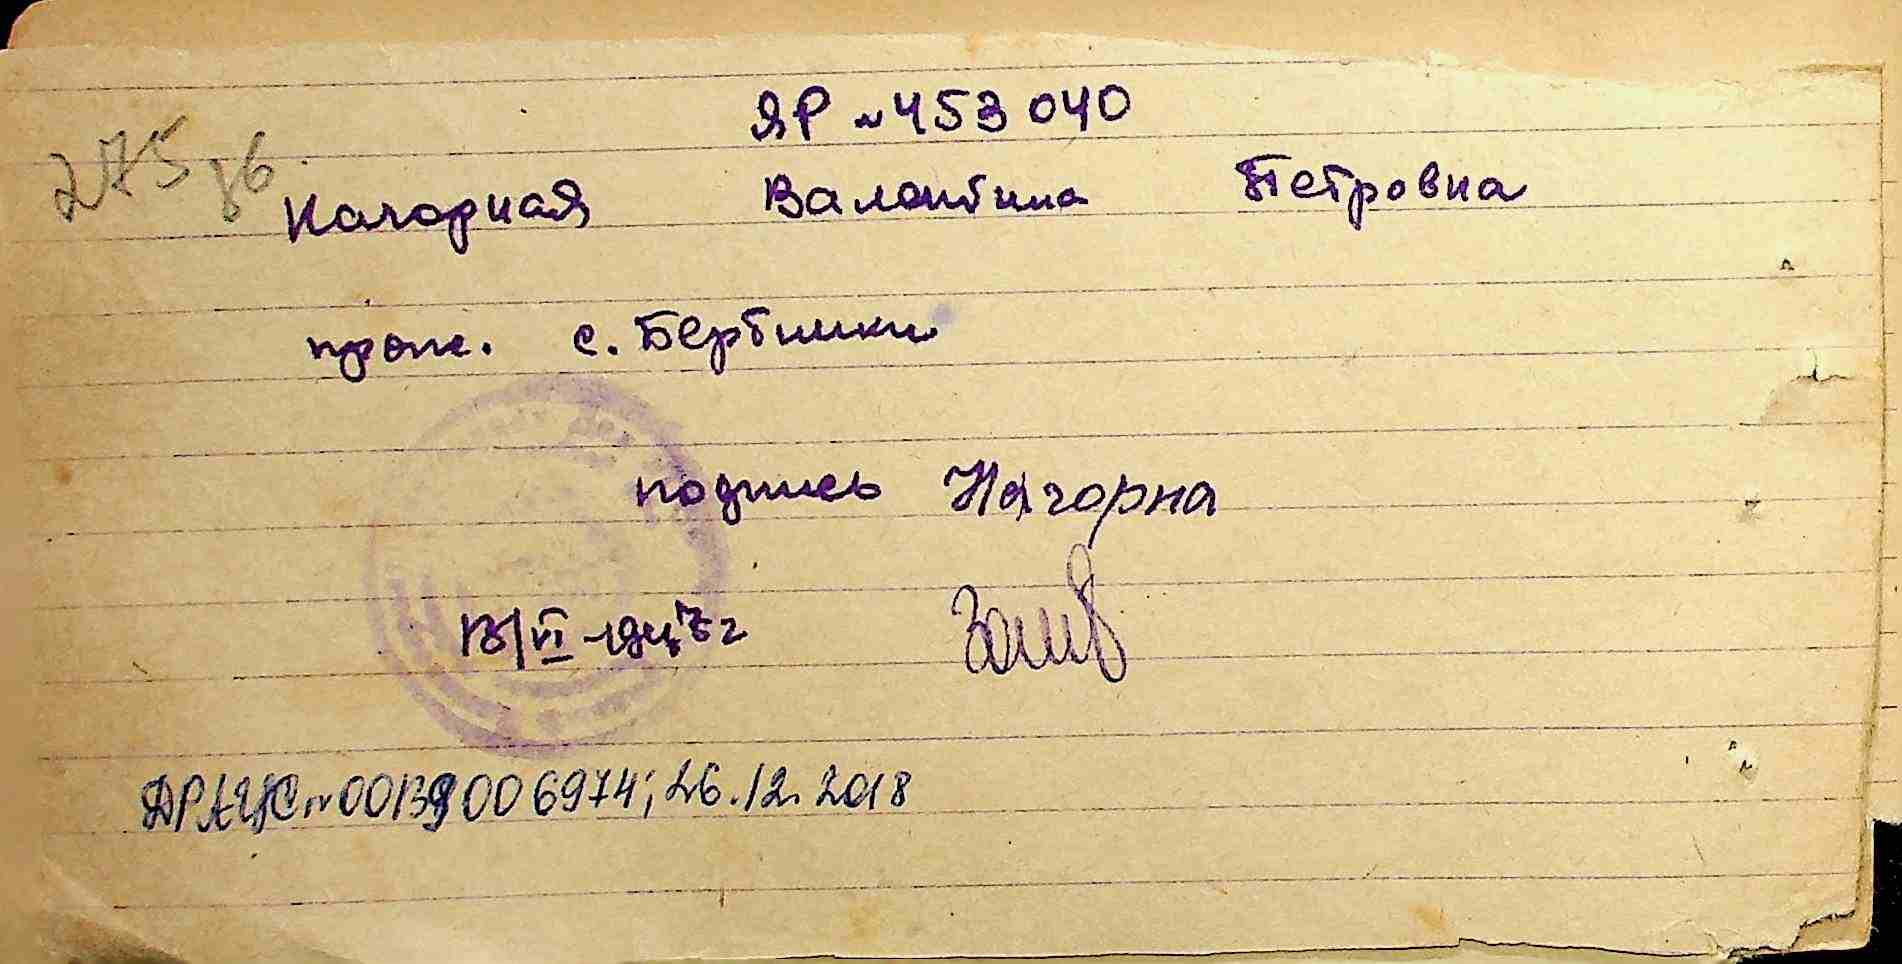 ЯР № 453040
275 зв
Нагорная Валентина Петровна
прож. с. Вербники
подпись Нагорна
13/VI - 1947 г
ДРАЦС № 00139006974; 26.12.2018